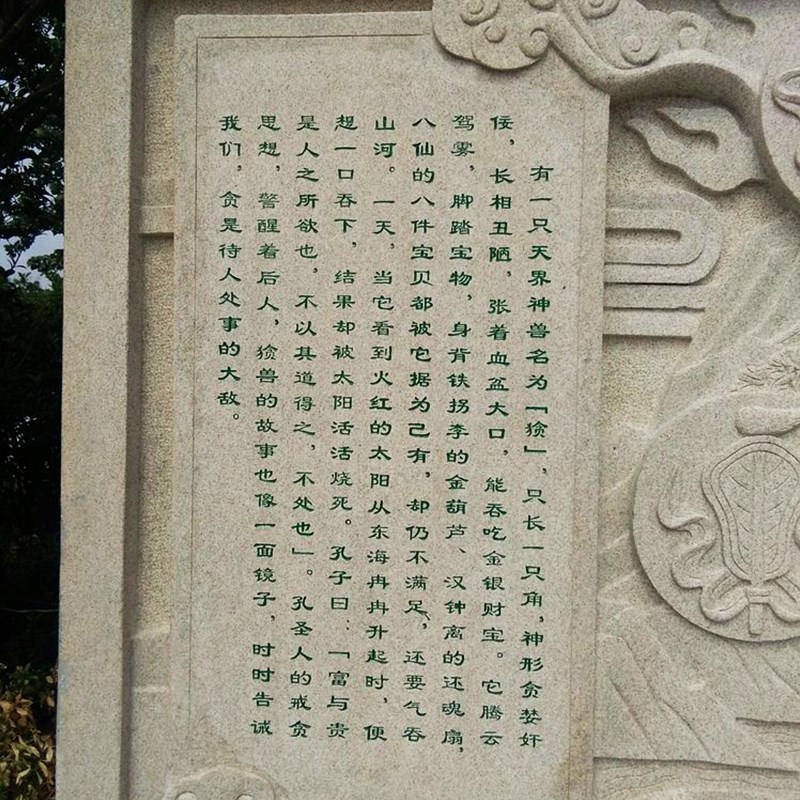 有一只天界神兽名为「𤟤」，只长一只角，神形贪婪奸
佞，长相丑陋，张着血盆大口，能吞吃金银财宝。它腾云
驾雾，脚踏宝物，身背铁拐李的金葫芦、汉钟离的还魂扇，
八仙的八件宝贝都被它据为己有，却仍不满足，还要气吞
山河。一天，当它看到火红的太阳从东海冉冉升起时，便
想一口吞下，结果却被太阳活活烧死。孔子曰：「富与贵
是人之所欲也，不以其道得之，不处也」。孔圣人的戒贪
思想，警醒着后人，𤟤兽的故事也像一面镜子，时时告诫
我们，贪是待人处事的大敌。